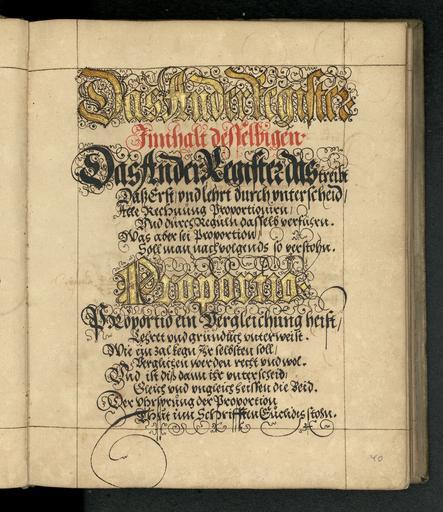 Das Ander Register
Innhalt desselbigen.
Das Ander Register das treibt
Daß Erst / vnd lehrt durch vnterscheid /
Alle Rechnung Proportionirn /
Vnd durch Reguln dasselb verführn.
Was aber sei Proportion /
Soll man nachvolgends so verstohn.
Proportio.
Proportio ein Vergleichung heist /
Lehrt vnd gründlich vnterweist.
Wie ein zal kegn Ihr selbsten soll /
Verglichen werden recht vnd wol.
Vnd ist diß dann ihr vnterscheid /
Gleich vnd vngleich heissen die Beid.
Der Vhrsprung der Proportion
Thut inn Schrifften Euclidis stohn.
40